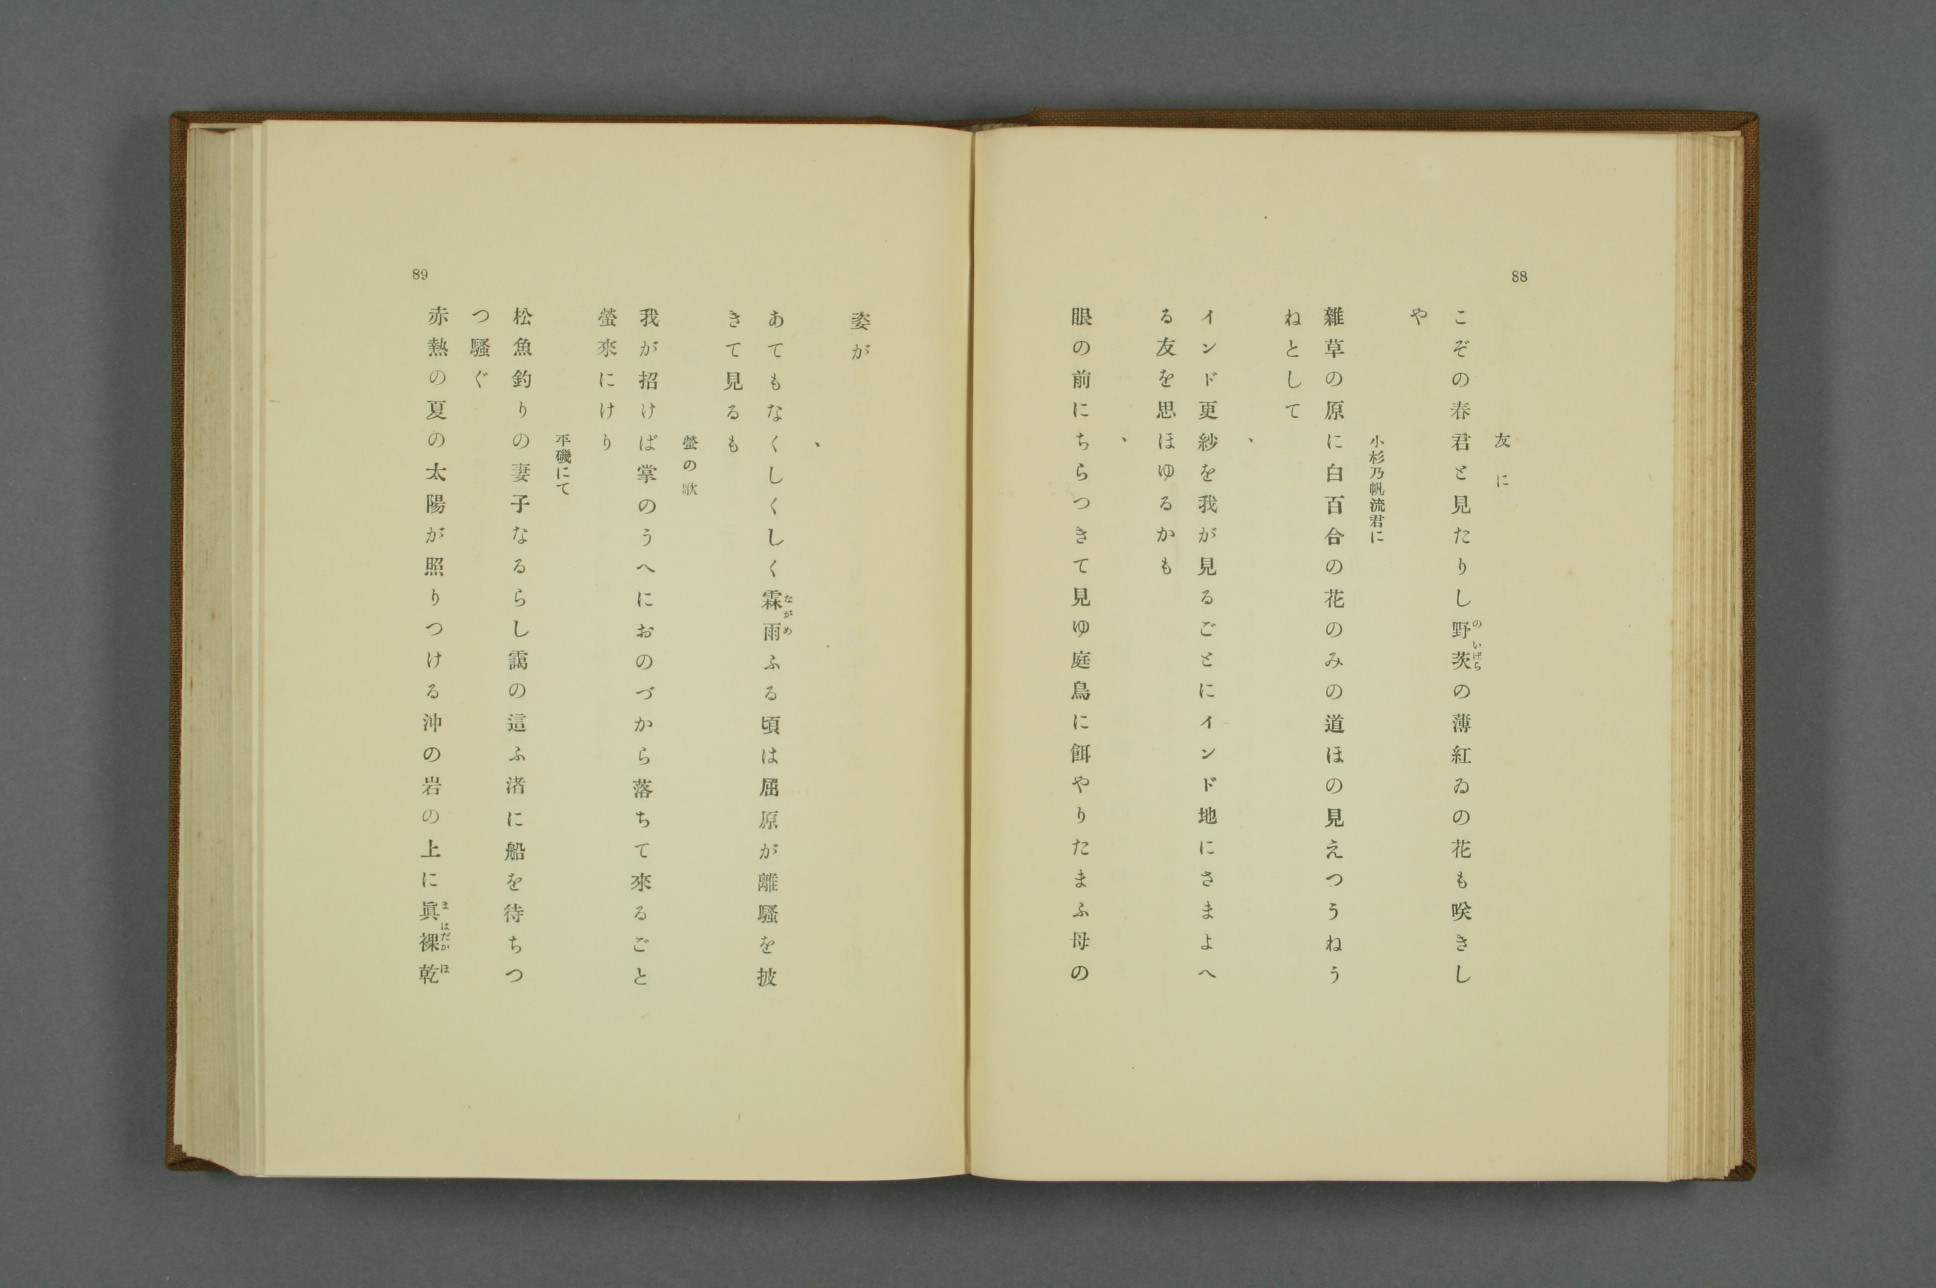 88
友に
こぞの春君と見たりし野茨の薄紅ゐの花も咲きし
のいばら
や
小杉乃帆流君に
雜草の原に白百合の花のみの道ほの見えつうねう
ねとして
、
インド更紗を我が見るごとにインド地にさまよへ
る友を思ほゆるかも
、
眼の前にちらつきて見ゆ庭鳥に餌やりたまふ母の
89
姿が
、
あてもなくしくしく霖雨ふる頃は屈原が離騷を披
ながめ
きて見るも
螢の歌
我が招けば掌のうへにおのづから落ちて來るごと
螢來にけり
平磯にて
松魚釣りの妻子なるらし靄の這ふ渚に船を待ちつ
つ騷ぐ
赤熱の夏の太陽が照りつける沖の岩の上に眞裸乾
まはだかほ